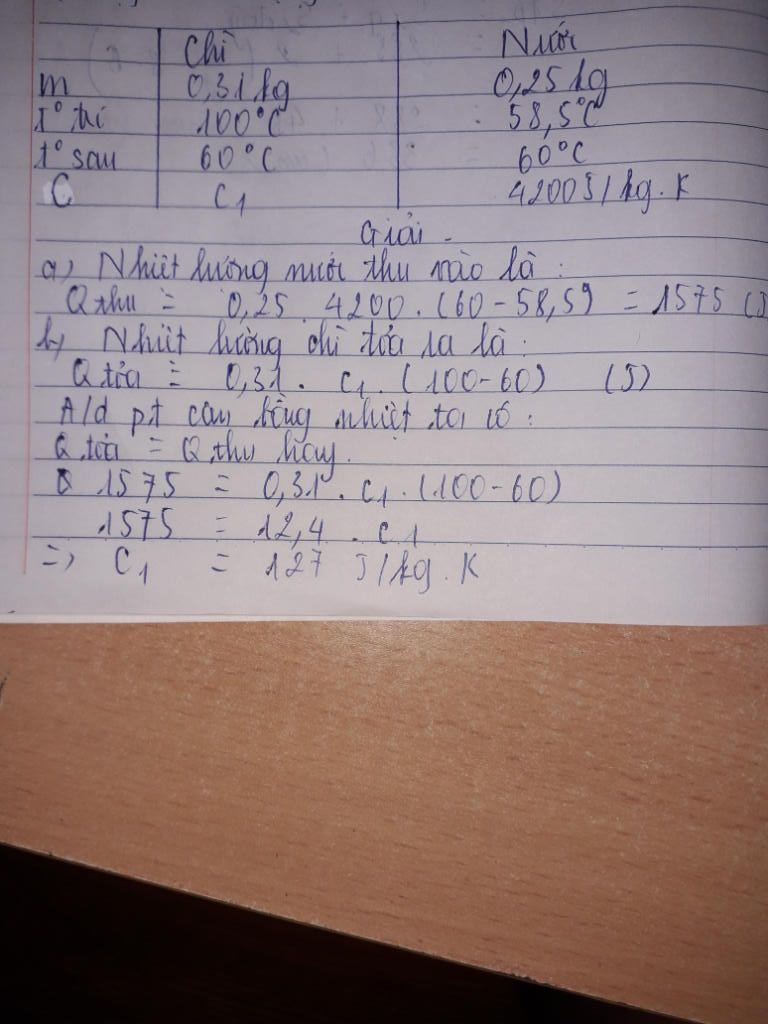 Chì Nước
m 0,31 kg 0,25 kg
t° trc 100°C 58,5°C
t° sau 60°C 60°C
C C1 4200J/kg.K
Giải.
a) Nhiệt lượng nước thu vào là :
Q thu = 0,25 . 4200 . (60-58,5) = 1575 (J)
b) Nhiệt lượng chì tỏa ra là :
Q tỏa = 0,31 . c1 . (100-60) (J)
A/d pt cân bằng nhiệt ta có :
Q tỏa = Q thu hay.
1575 = 0,31 . c1 . (100-60)
1575 = 12,4 . c1
=> C1 = 127 J/kg.K